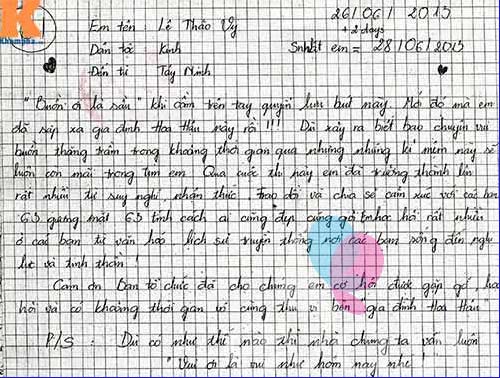 K
Khampha...
Em tên : Lê Thảo Vy
26/06/2015
+ 2 days
Dân tộc : Kinh
Snhật em = 28/06/2015
Đến từ : Tây Ninh
"Buồn ơi là sầu" khi cầm trên tay quyển lưu bút này. Mới đó mà em
đã sắp xa gia đình Hoa Hậu này rồi !!! Dù xảy ra biết bao chuyện vui
buồn thăng trầm trong khoảng thời gian qua nhưng những kỉ niệm này sẽ
luôn còn mãi trong tim em. Qua cuộc thi này em đã trưởng thành lên
rất nhiều từ suy nghĩ, nhận thức. Trao đổi và chia sẻ cảm xúc với các bạn
63 gương mặt 63 tính cách ai cũng đẹp cũng giỏi. Em học hỏi rất nhiều
ở các bạn từ văn hóa, lịch sử truyền thống nơi các bạn sống đến nghị
lực và tinh thần !
Cảm ơn Ban tổ chức đã cho chúng em cơ hội được gặp gỡ, học
hỏi và có khoảng thời gian vô cùng thú vị bên "gia đình Hoa Hậu"
P/S : Dù có như thế nào thì nhà chúng ta vẫn luôn
"Vui ơi là vui như hôm nay nhé !"